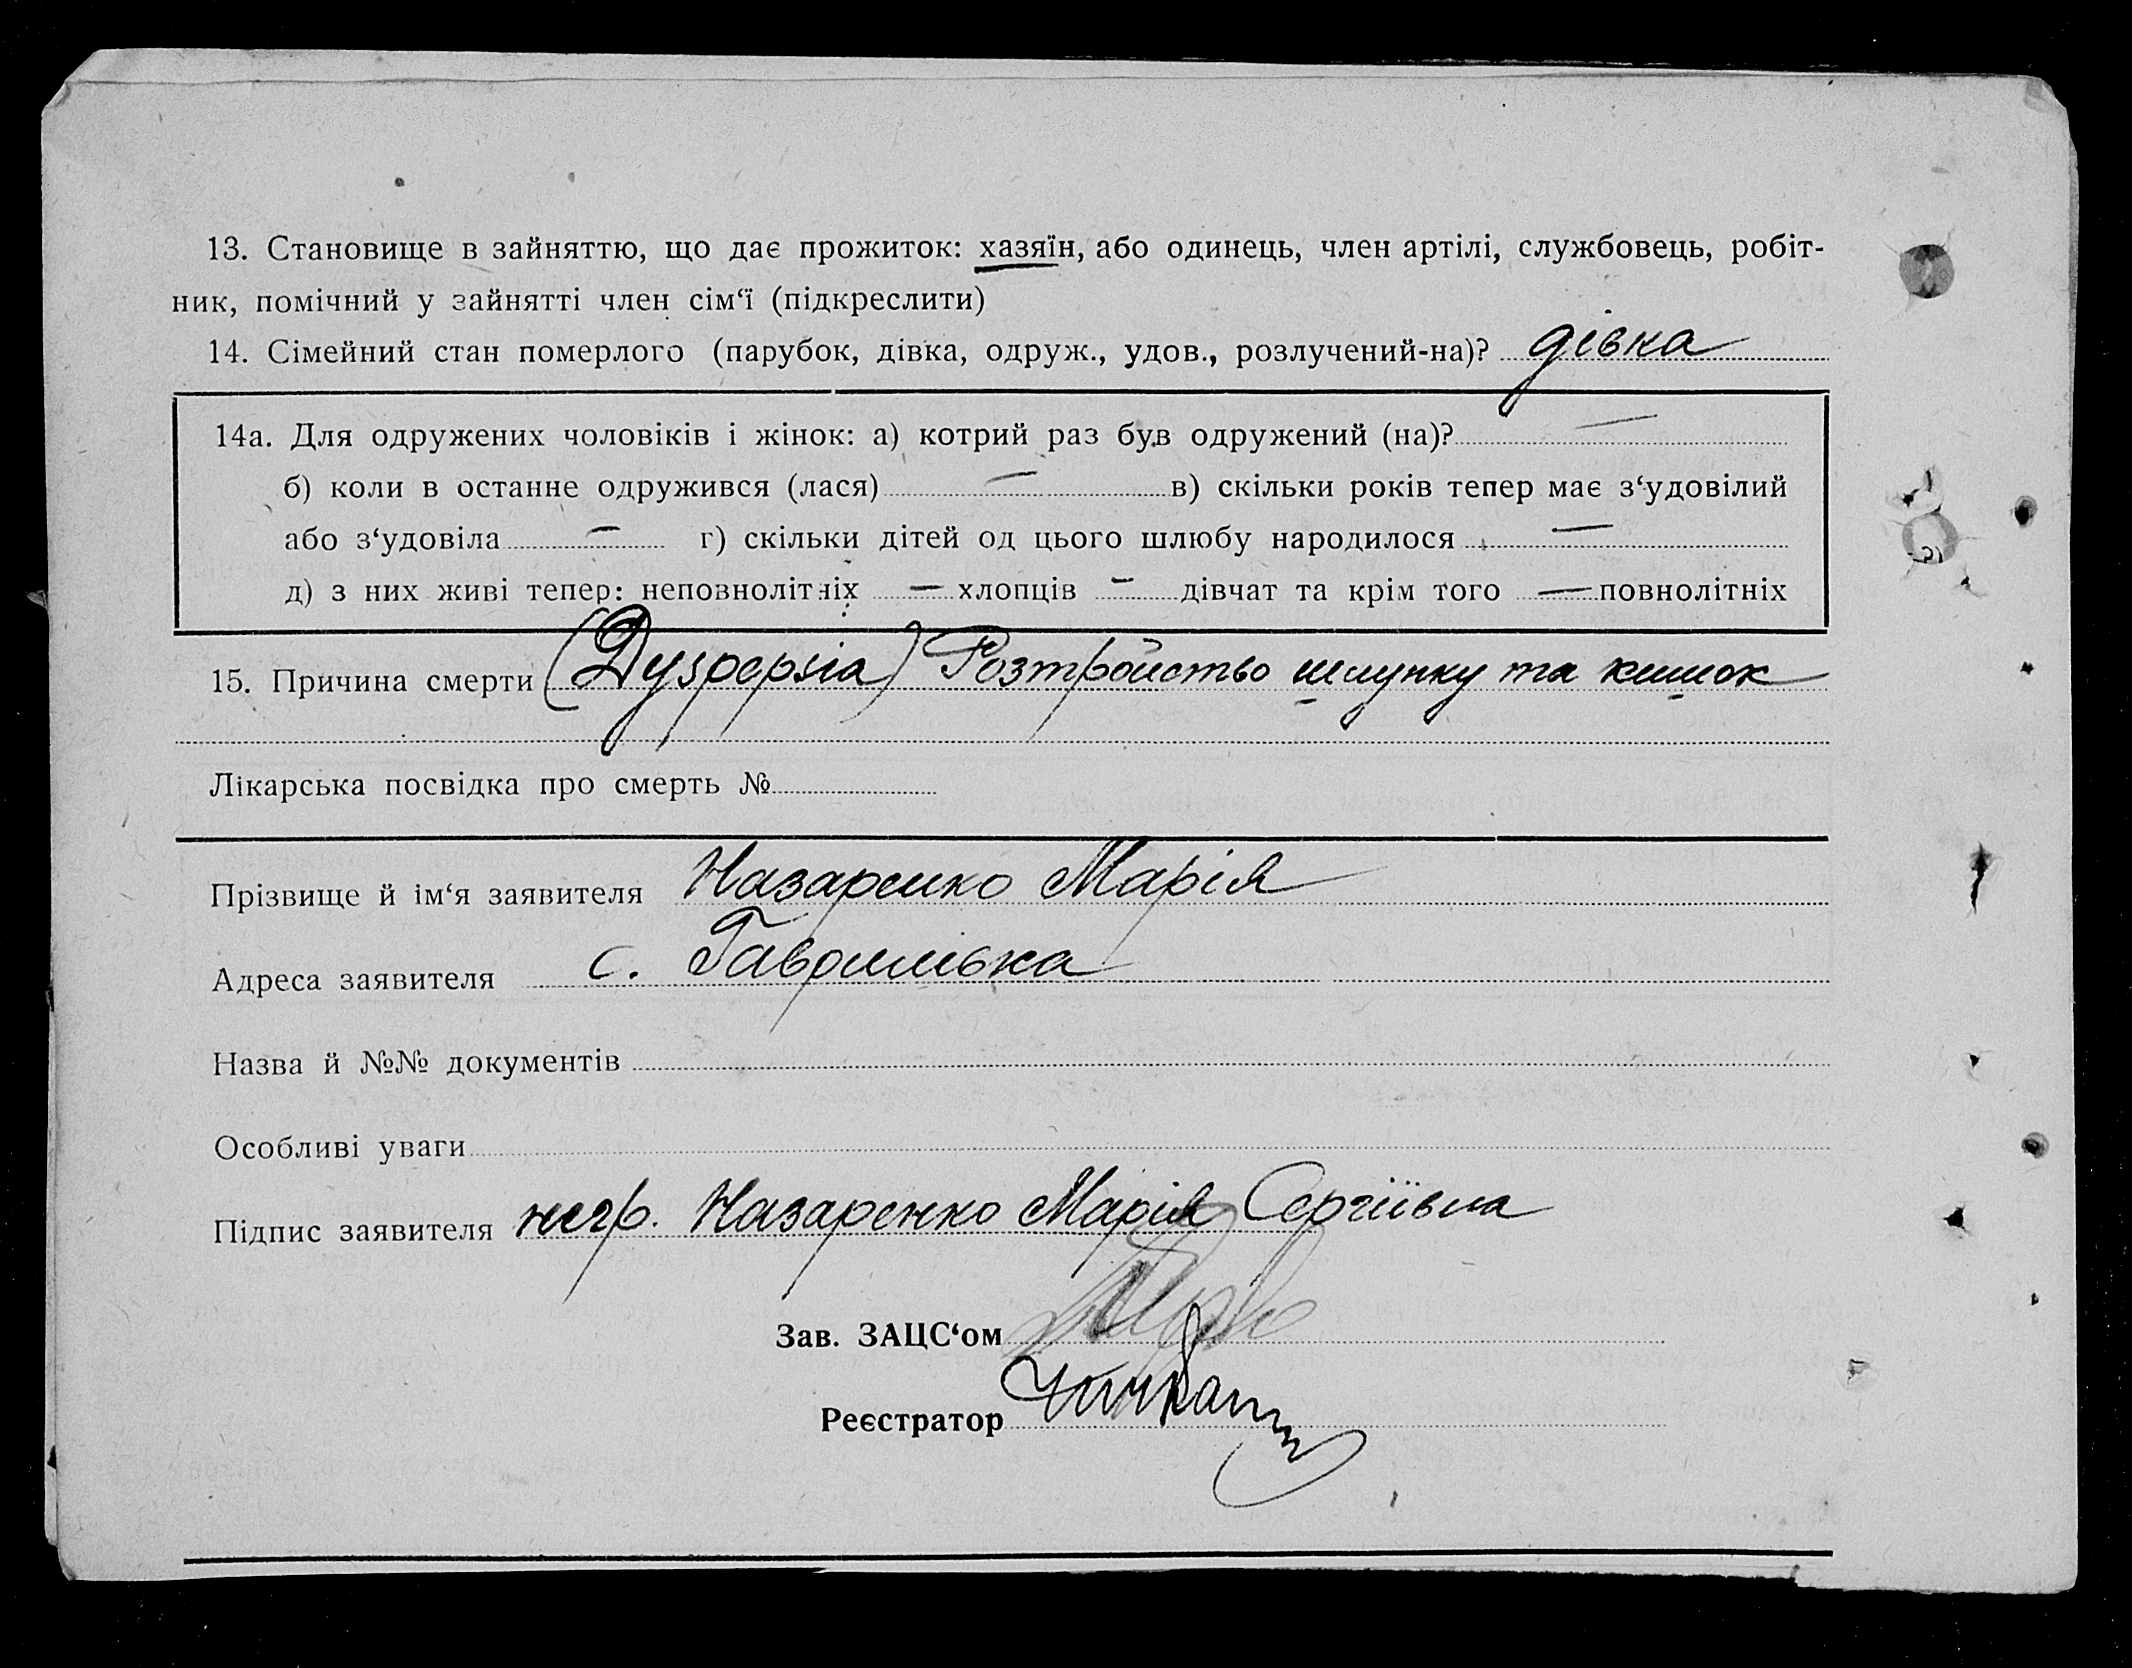 13. Становище в зайняттю, що дає прожиток: хазяїн, або одинець, член артілі, службовець, робіт-
ник, помічний у зайнятті член сім‘ї (підкреслити)
14. Сімейний стан померлого (парубок, дівка, одруж., удов., розлучений-на)? дівка
14а. Для одружених чоловіків і жінок: а) котрий раз був одружений (на)? —
б) коли в останнє одружився (лася) — в) скільки років тепер має з‘удовілий
або з‘удовіла — г) скільки дітей од цього шлюбу народилося —
д) з них живі тепер: неповнолітніх — хлопців — дівчат та крім того — повнолітніх
15. Причина смерти (Dyspepsia) Розтройство шлунку та кишок
Лікарська посвідка про смерть №
Прізвище й ім‘я заявителя Назаренко Марія
Адреса заявителя с. Гавришівка
Назва й №№ документів
Особливі уваги
Підпис заявителя негр. Назаренко Марія Сергіївна
Зав. ЗАЦС‘ом
Реєстратор